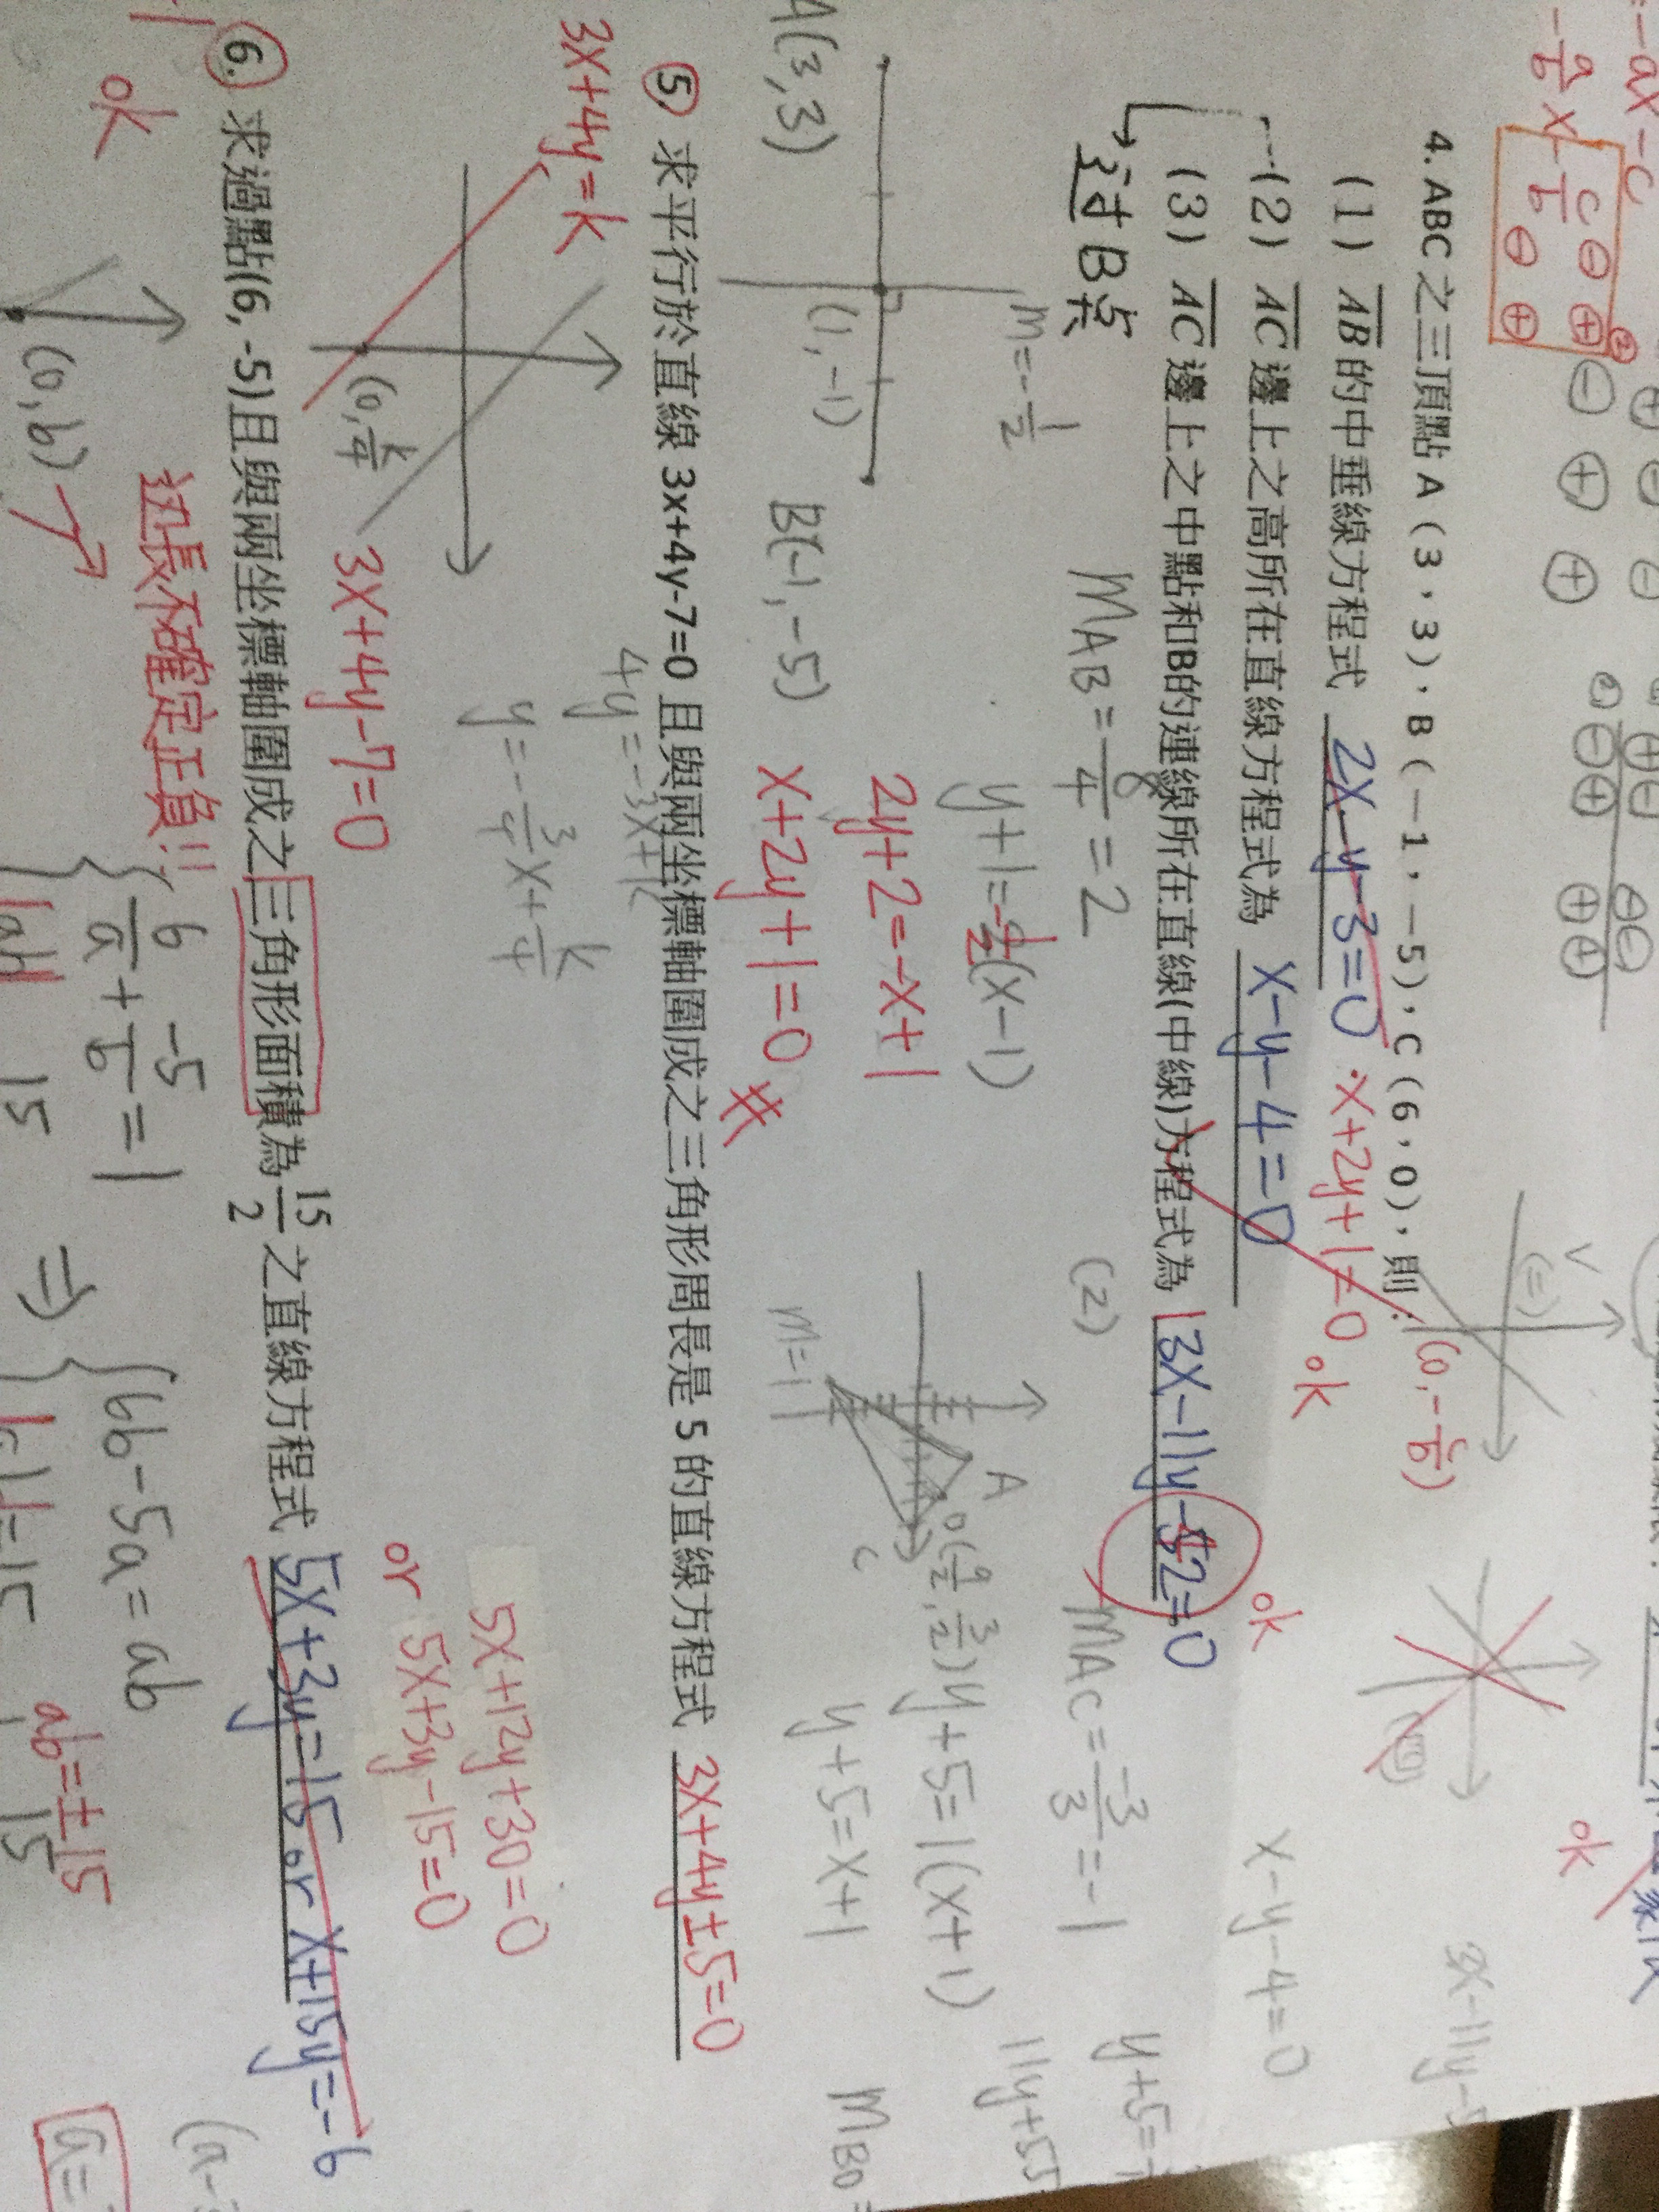 =-ax-c
-a/b x - c/b
4. ABC之三頂點A(3,3),B(-1,-5),C(6,0),則:
(1) AB的中垂線方程式 2x-y-3=0 ·x+2y+1=0 ok
(2) AC邊上之高所在直線方程式為 x-y-4=0
(3) AC邊上之中點和B的連線所在直線(中線)方程式為 13x-11y-42=0 ok
→过B点
(0,-c/b)
ok
x-y-4=0
m=-1/2
(1,-1)
A(3,3)
B(-1,-5)
MAB=8/4=2
y+1=-1/2(x-1)
2y+2=-x+1
x+2y+1=0
(2)
A
C
D(9/2,3/2)
m=1
MAC=-3/3=-1
y+5=1(x+1)
y+5=x+1
11y+55
MBD=
⑤ 求平行於直線 3x+4y-7=0 且與兩坐標軸圍成之三角形周長是 5 的直線方程式 3x+4y±5=0
3x+4y=k
(0,k/4)
3x+4y-7=0
4y=-3x+k
y=-3/4x+k/4
5x+12y+30=0
or 5x+3y-15=0
⑥. 求過點(6,-5)且與兩坐標軸圍成之三角形面積為 15/2 之直線方程式 5x+3y=15 or x+15y=-6
ok
边長不確定正負!!
(0,b)
6/a+-5/b=1
⇒ 6b-5a=ab
ab=±15